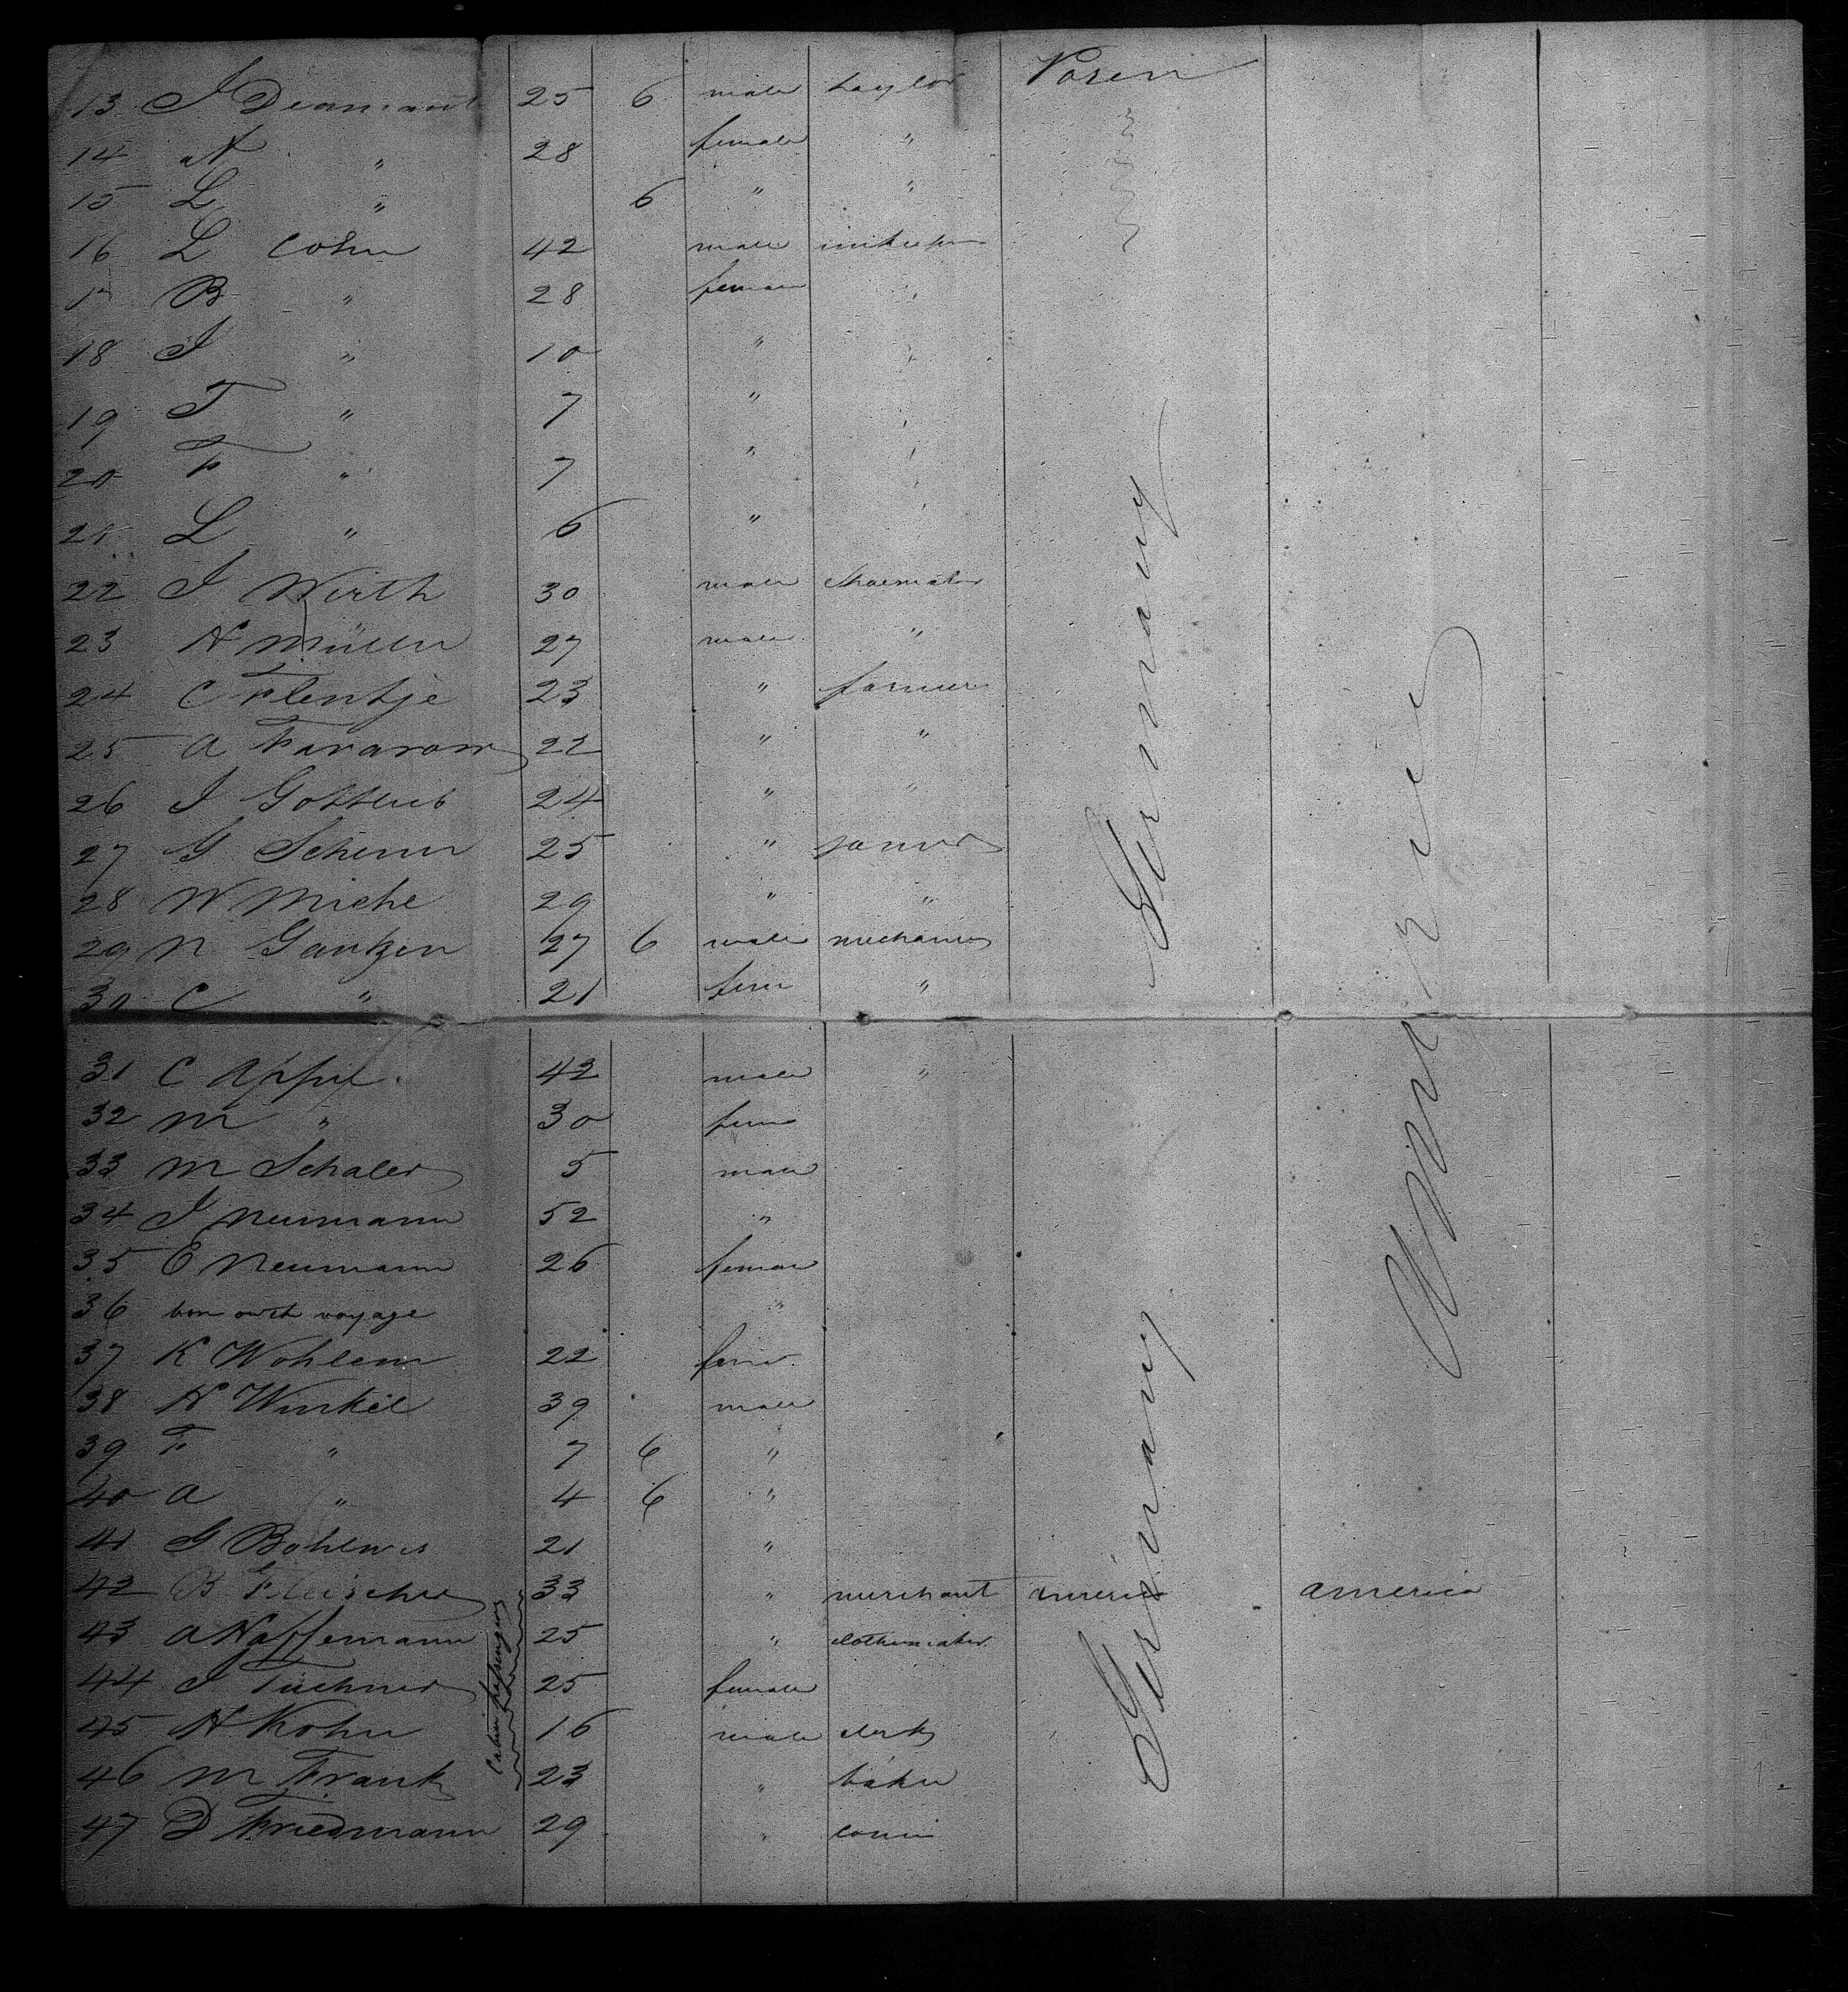 13 J Diamant 25 6 male taylor Posen
14 N " 28 female "
15 L " 6 " "
16 L Cohn 42 male innkeeper
17 B " 28 female "
18 J " 10 " "
19 T " 7 " "
20 F " 7 " "
21 L " 6 " "
22 J Wirth 30 male shoemaker
23 N Müller 27 male "
24 C Flentje 23 " farmer
25 A 22 " "
26 J Gottlieb 24 " "
27 G 25 "
28 W Miche 29 " "
29 N Gantzen 27 6 male mechanic
30 C " 21 fem "
31 C Appel 42 male "
32 M " 30 fem
33 M Schaler 5 male
34 J Neumann 52 "
35 E Neumann 26 female
36 born on the voyage "
37 K 22 fem
38 N Winkel 39 male
39 F " 7 6 "
40 A " 4 6 "
41 G 21 "
42 B Fleischer 33 " merchant America America
43 A Haffemann 25 " clothemaker
44 J Tuchner 25 female
45 N Kohn 16 male clerk
46 M Frank 23 " baker
47 D Friedmann 29 "
Cabin passengers
Germany
Germany
America